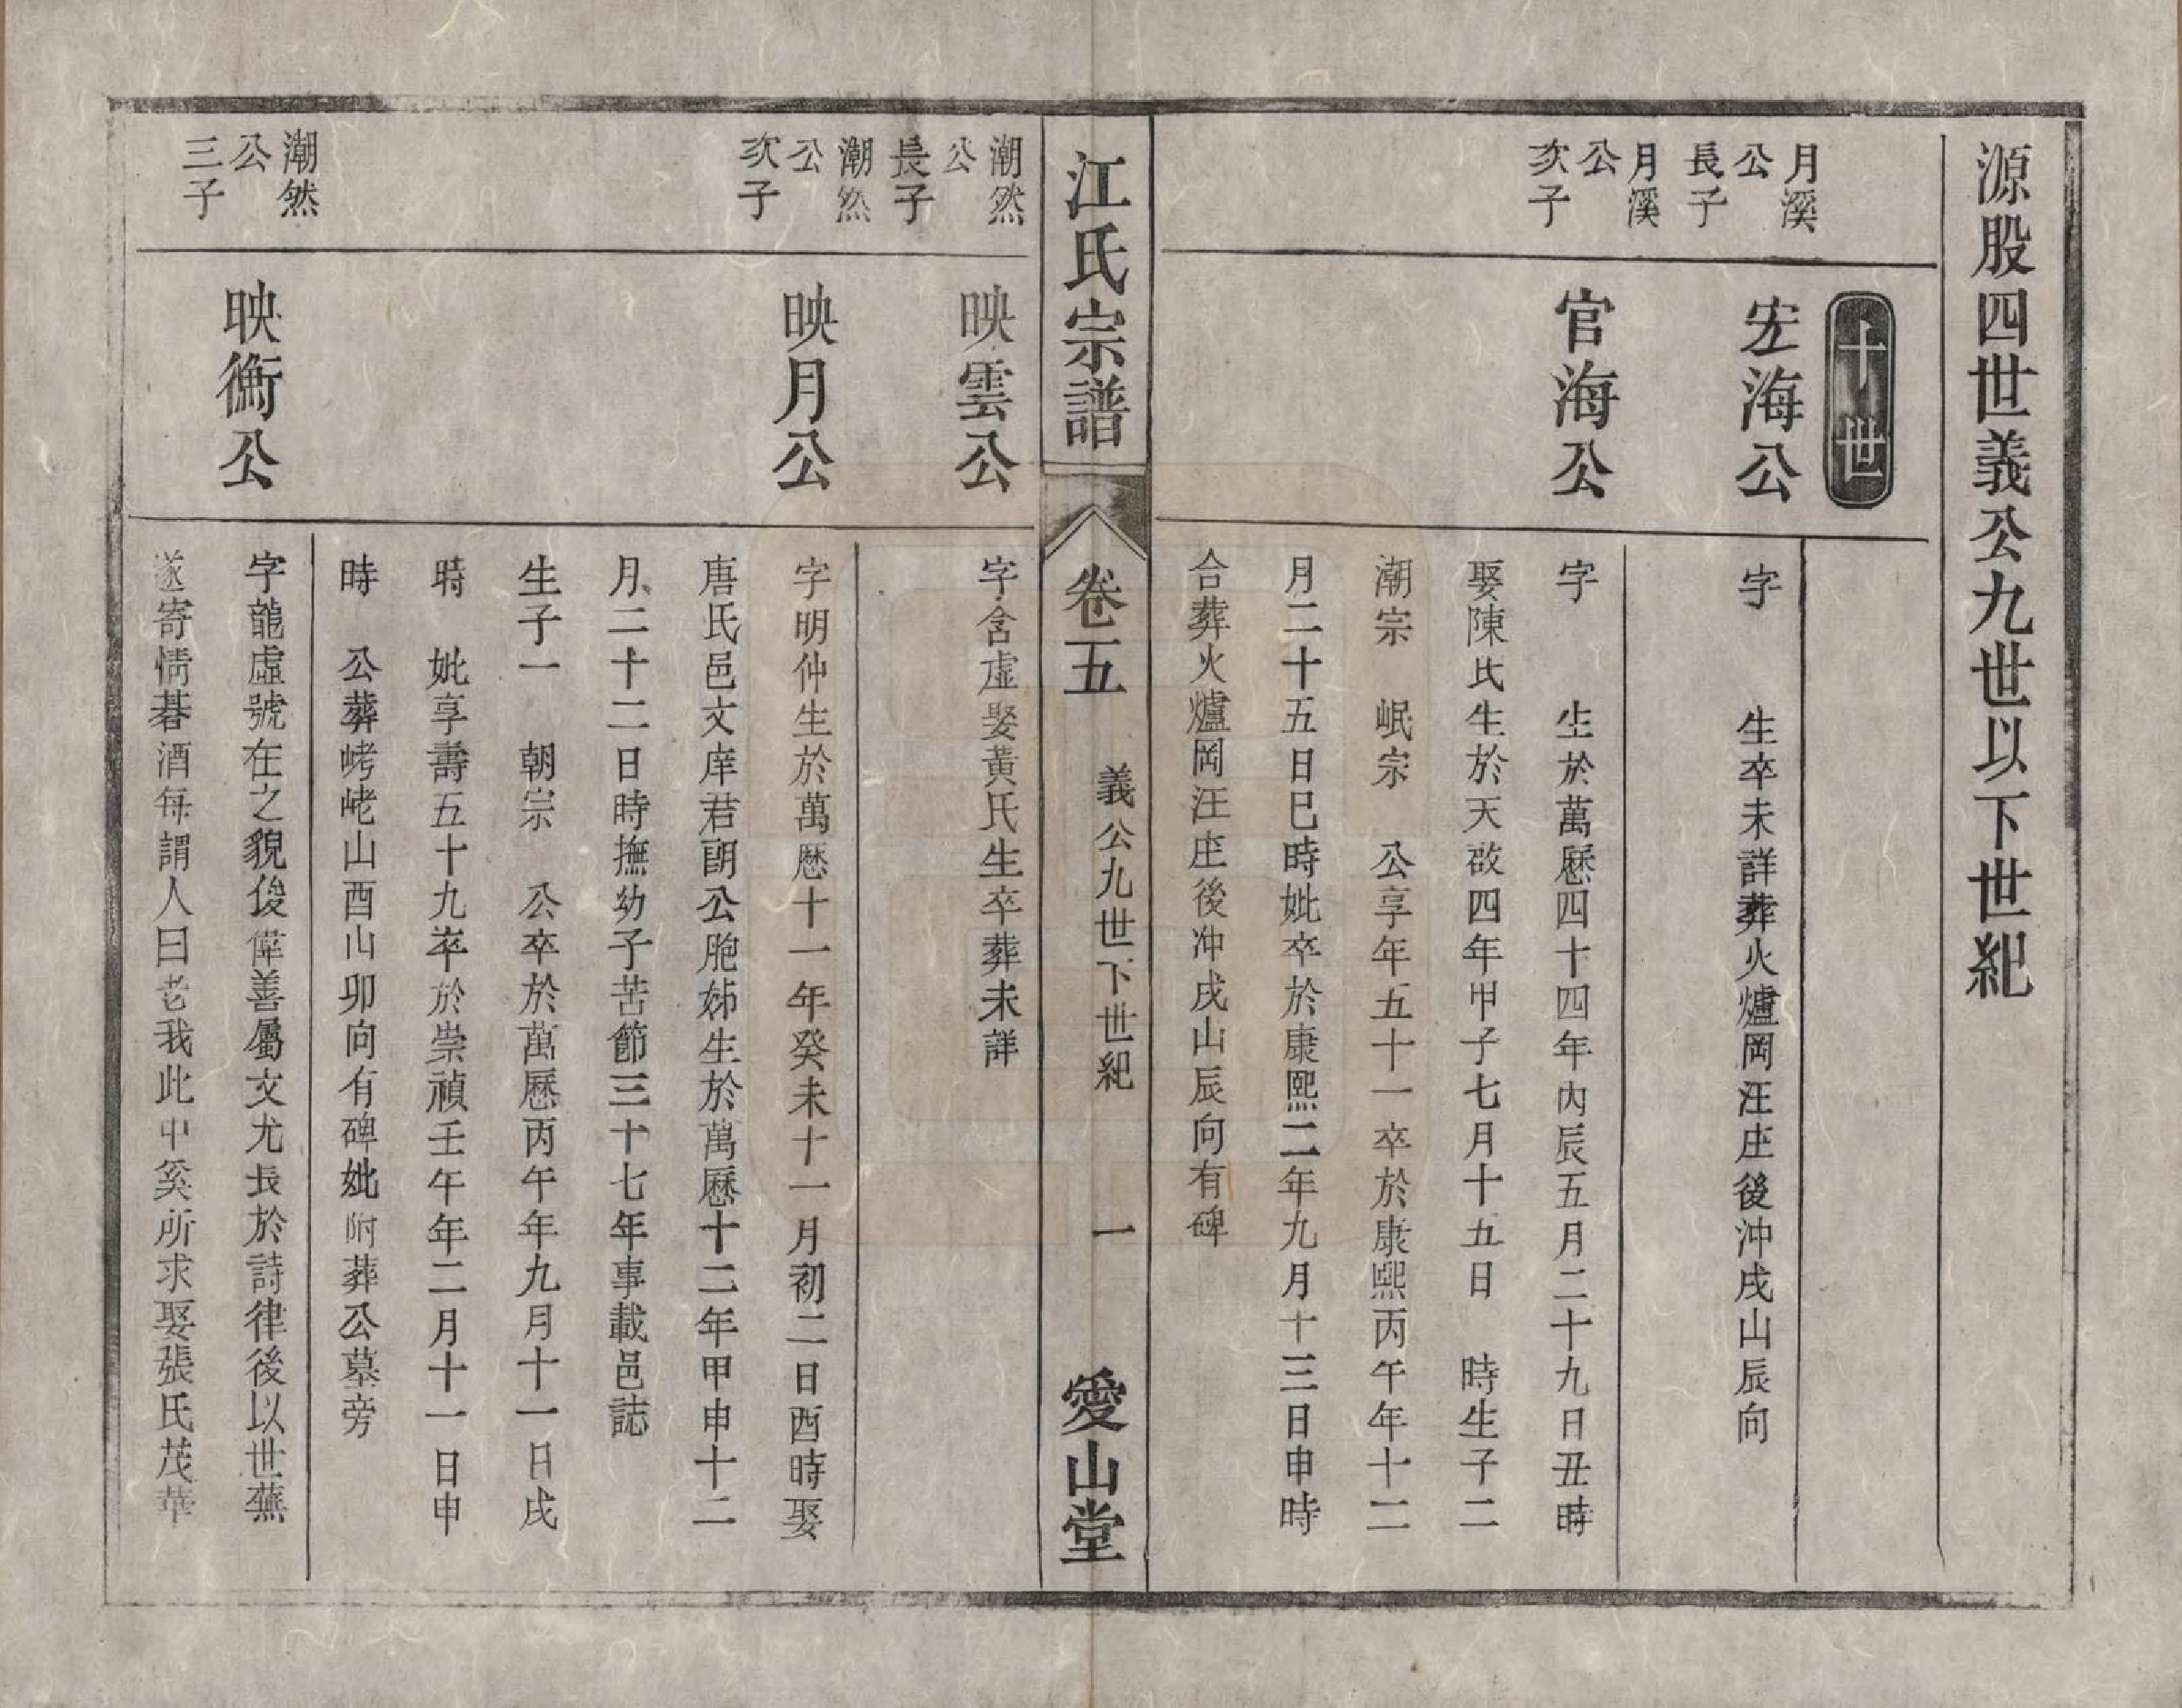 源股四世義公九世以下世紀
十世
月溪
公
長子
宏海公
字　　生卒未詳葬火爐岡汪庄後沖戌山辰向
月溪
公
次子
官海公
字　　生於萬歷四十四年內辰五月二十九日丑時
娶陳氏生於天啟四年甲子七月十五日　時生子二
潮宗　岷宗　公享年五十一卒於康熙丙午年十二
月二十五日巳時妣卒於康熙二年九月十三日申時
合葬火爐岡汪庄後冲戌山辰向有碑
江氏宗譜　卷五　義公九世下世紀　一　愛山堂
潮然
公
長子
映雲公
字含虛娶黃氏生卒葬未詳
潮然
公
次子
映月公
字明仲生於萬歷十一年癸未十一月初二日酉時娶
唐氏邑文庠君朗公胞姊生於萬歷十二年甲申十二
月二十二日時撫幼子苦節三十七年事載邑誌
生子一　朝宗　公卒於萬歷丙午年九月十一日戌
時　妣享壽五十九卒於崇禎壬午年二月十一日申
時　公葬峔峔山酉山卯向有碑妣附葬公墓旁
潮然
公
三子
映衡公
字龍虛號在之貌俊偉善屬文尤長於詩律後以世蕪
遂寄情碁酒每謂人曰老我此中奚所求娶張氏茂華